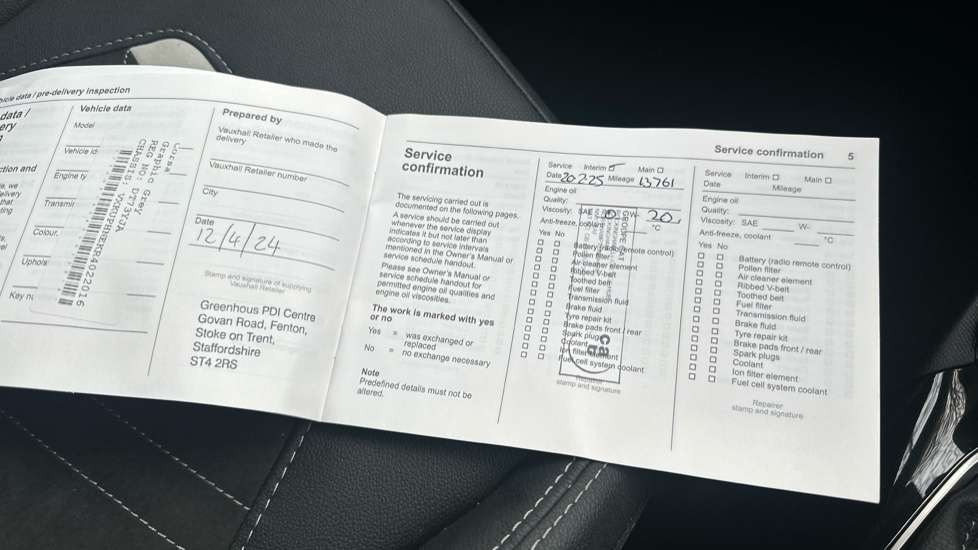 hicle data / pre-delivery inspection
data /
ery
ction and
e, we
elivery
that
ting
Vehicle data
Model
Vehicle id
Engine ty
Transmi
Colour,
Uphols
Key nu
Corsa
Graphic Grey
REG NO: DT73YJA
Prepared by
Vauxhall Retailer who made the
delivery
Vauxhall Retailer number
City
Date
12/4/24
Stamp and signature of supplying
Vauxhall Retailer
Greenhous PDI Centre
Govan Road, Fenton,
Stoke on Trent,
Staffordshire
ST4 2RS
Service
confirmation
The servicing carried out is
documented on the following pages.
A service should be carried out
whenever the service display
indicates it but not later than
according to service intervals
mentioned in the Owner's Manual or
service schedule handout.
Please see Owner's Manual or
service schedule handout for
permitted engine oil qualities and
engine oil viscosities.
The work is marked with yes
or no
Yes = was exchanged or
replaced
No = no exchange necessary
Note
Predefined details must not be
altered.
Service confirmation 5
Service Interim Main
Date 20.2.25 Mileage 13761
Engine oil
Quality:
Viscosity: SAE 0 W- 20
Anti-freeze, coolant °C
Yes No
Battery (radio remote control)
Pollen filter
Air cleaner element
Ribbed V-belt
Toothed belt
Fuel filter
Transmission fluid
Brake fluid
Tyre repair kit
Brake pads front / rear
Spark plugs
Coolant
Ion filter element
Fuel cell system coolant
Repairer
stamp and signature
Service Interim Main
Date Mileage
Engine oil
Quality:
Viscosity: SAE W-
Anti-freeze, coolant °C
Yes No
Battery (radio remote control)
Pollen filter
Air cleaner element
Ribbed V-belt
Toothed belt
Fuel filter
Transmission fluid
Brake fluid
Tyre repair kit
Brake pads front / rear
Spark plugs
Coolant
Ion filter element
Fuel cell system coolant
Repairer
stamp and signature